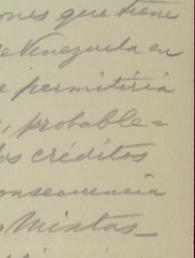 ones que tiene
de Venezuela en
e permitiria
, probable=
los créditos
consecuencia
Mixtas